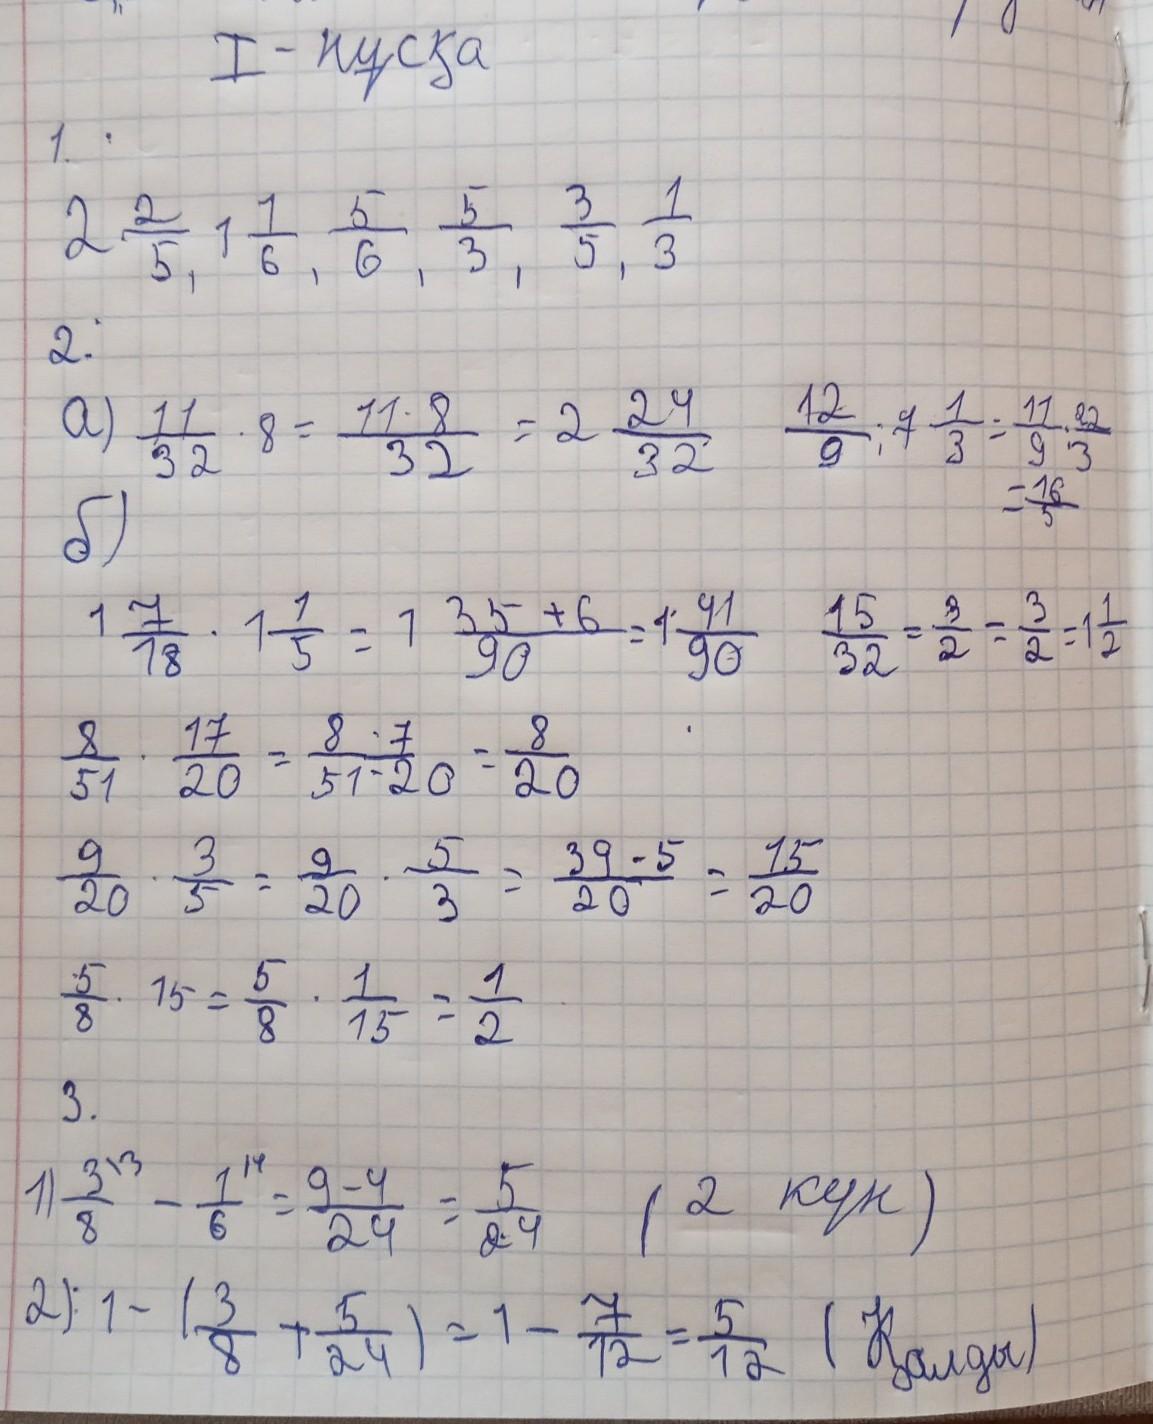 I - нұсқа
1.
2 2/5, 1 1/6, 5/6, 5/3, 3/5, 1/3
2.
а) 11/32 · 8 = 11·8/32 = 2 24/32 12/9 : 7 1/3 = 11/9 · 22/3
= 16/5
б)
1 7/18 · 1 1/5 = 1 35+6/90 = 1 41/90 15/32 = 3/2 = 3/2 = 1 1/2
8/51 · 17/20 = 8·7/51·20 = 8/20
9/20 · 3/5 = 9/20 · 5/3 = 39-5/20 = 15/20
5/8 · 15 = 5/8 · 1/15 = 1/2
3.
1) 3\3/8 - 1\4/6 = 9-4/24 = 5/24 (2 күн)
2) 1 - (3/8 + 5/24) = 1 - 7/12 = 5/12 (Қалды)